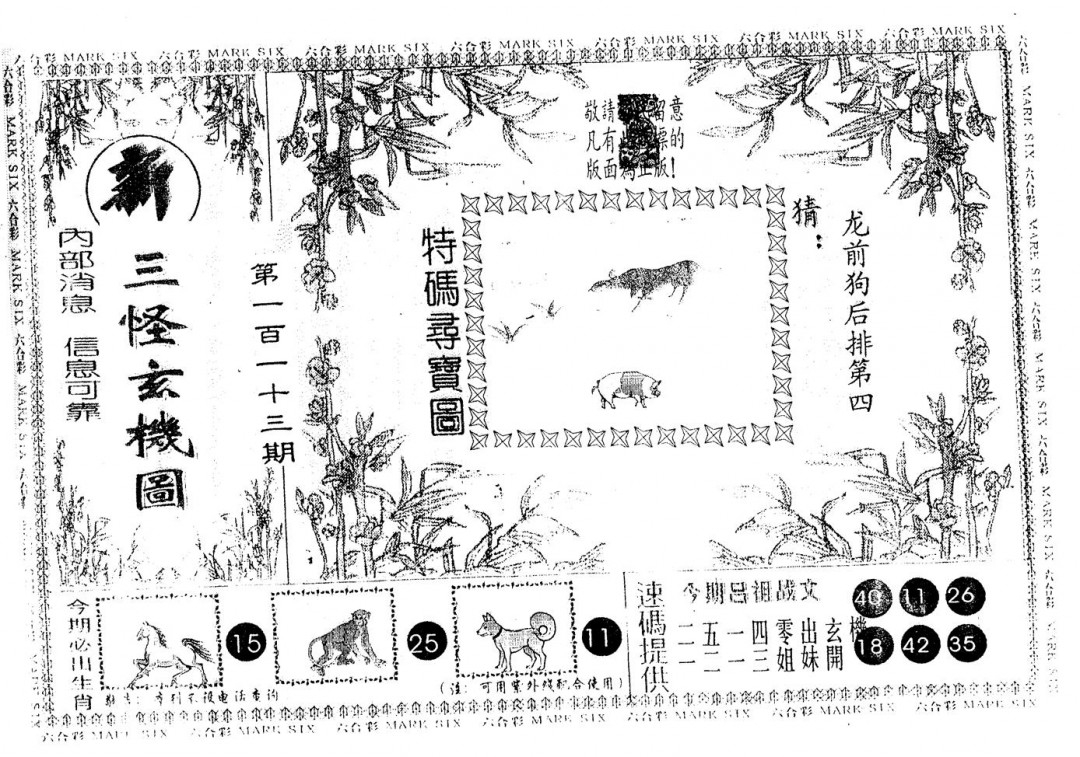 六合彩 MARK SIX 六合彩 MARK SIX 六合彩 MARK SIX 六合彩 MARK SIX 六合彩 MARK SIX 六合彩 MARK SIX 六合彩 MARK SIX
新
內部消息 信息可靠
三怪玄機圖
第一百一十三期
敬請 留意
凡有 標的
版面為正版!
特碼尋寶圖
猜:
龙前狗后排第四
今期必出生肖
15
25
11
(注: 可用紫外线配合使用)
速碼提供
今期吕祖战文
二五一四零出玄機
一二一三姐妹開
40 11 26
18 42 35
六合彩 MARK SIX 六合彩 MARK SIX 六合彩 MARK SIX 六合彩 MARK SIX 六合彩 MARK SIX 六合彩 MARK SIX 六合彩 MARK SIX